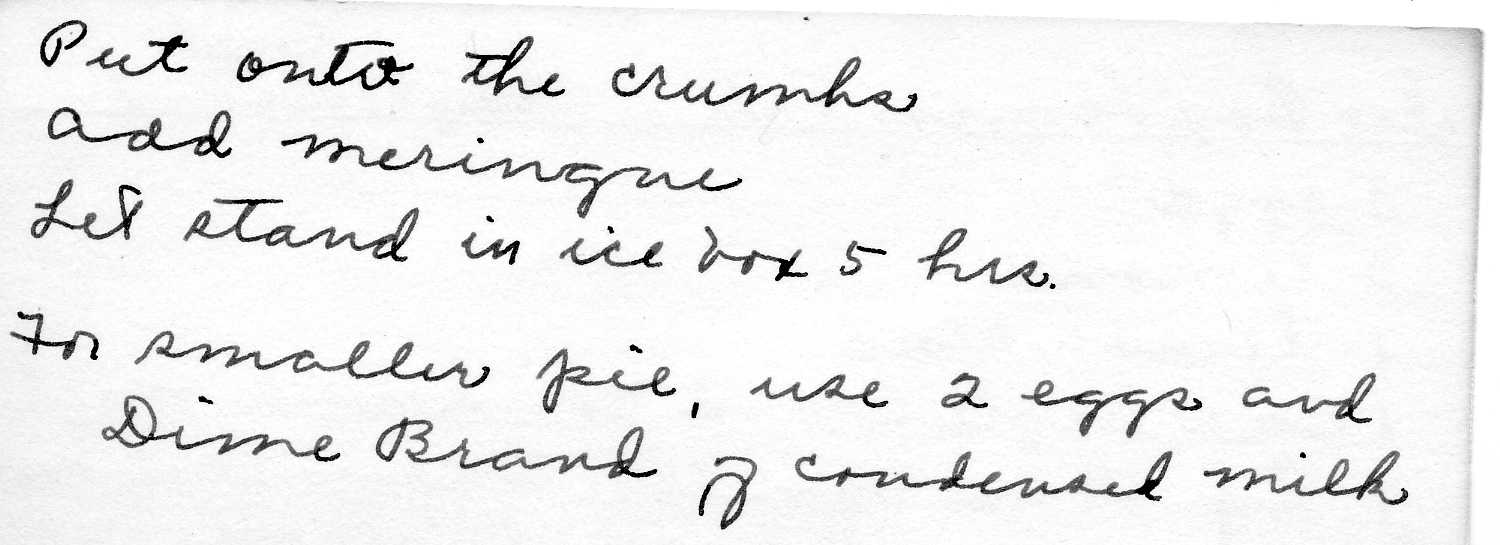 Put onto the crumbs
Add meringue
Let stand in ice box 5 hrs.
For smaller pie, use 2 eggs and
Dime Brand of condensed milk